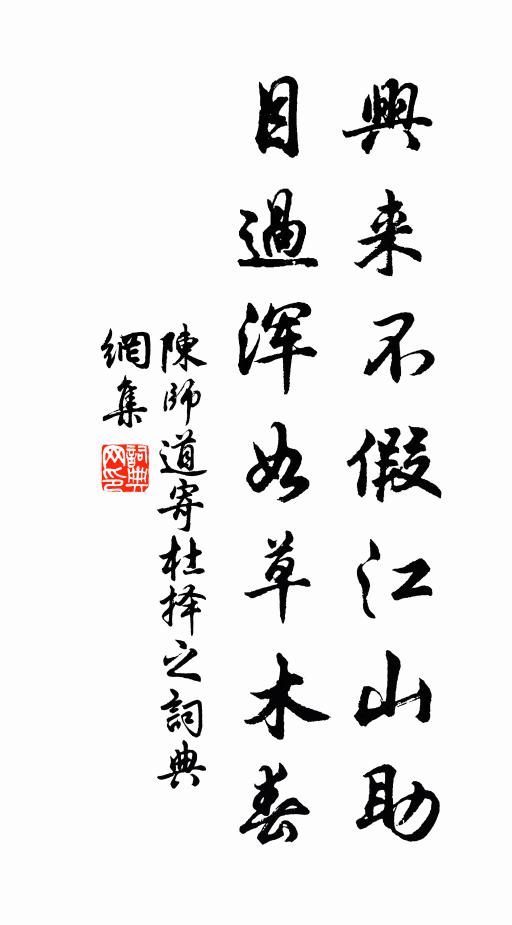 興来不假江山助
目過浑如草木春
陳師道寄杜择之詞典
網集
詞典
网印